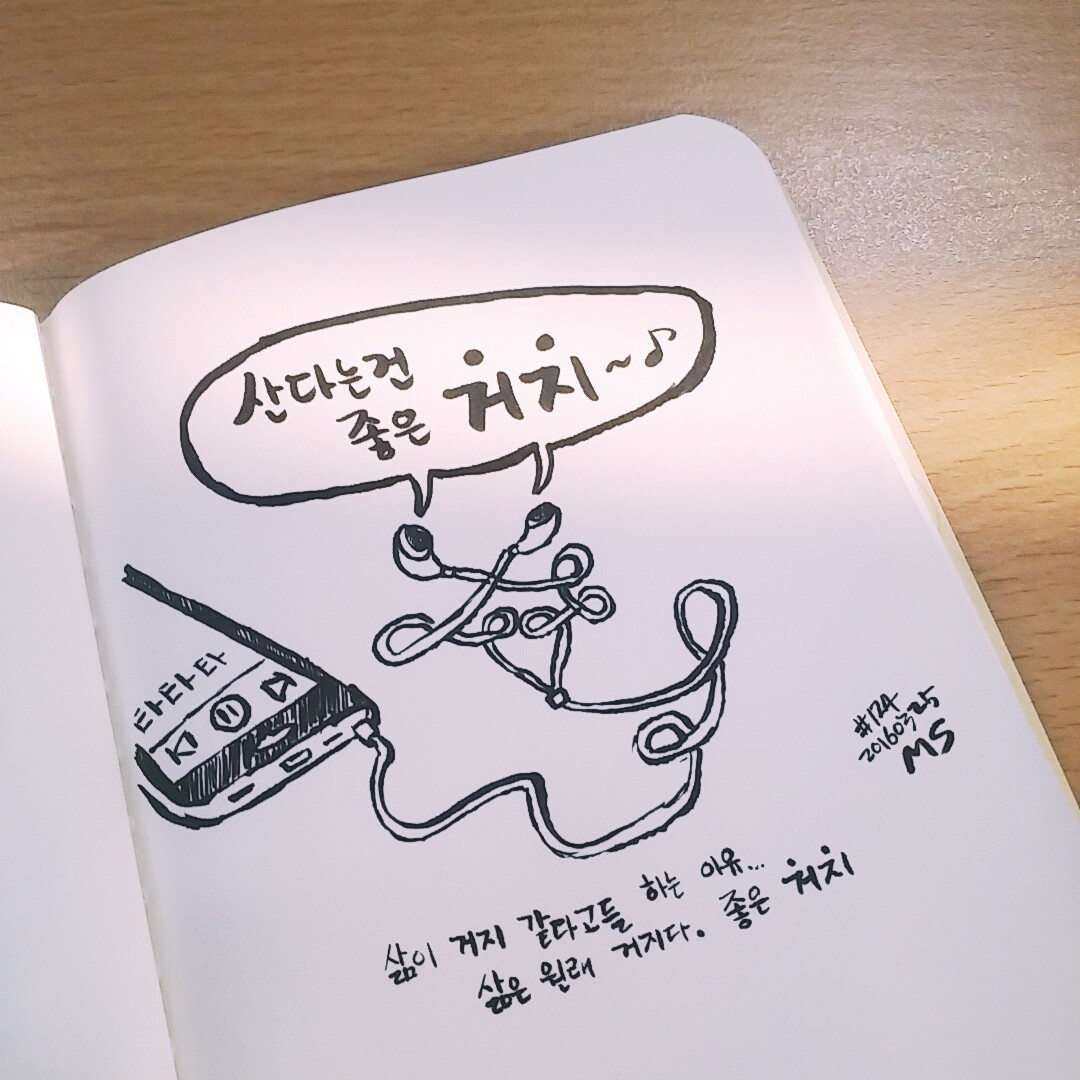 산다는건
좋은 거지~♪
타타타
#124
20160325
MS
삶이 거지 같다고들 하는 이유...
삶은 원래 거지다. 좋은 거지